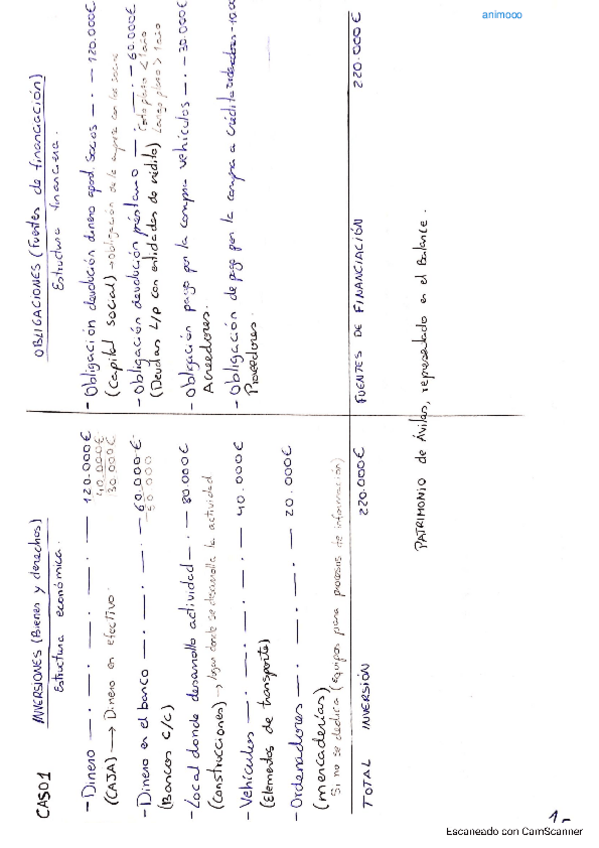 animooo
CASO1
INVERSIONES (Bienes y derechos)
Estructura económica.
- Dinero —·—·—·—·— 120.000€
40.000€
(CAJA) → Dinero en efectivo. 30.000€
- Dinero en el banco —·—·—·— 60.000€
50.000
(Bancos c/c)
- Local donde desarrolla actividad —·— 80.000€
(Construcciones) → lugar donde se desarrolla la actividad
- Vehículos —·—·—·— 40.000€
(Elementos de transporte)
- Ordenadores —·—·—·— 20.000€
(mercaderías)
Si no se dedica (equipos para procesos de información)
TOTAL INVERSIÓN 220.000€
OBLIGACIONES (Fuentes de financiación)
Estructura financiera.
- Obligación devolución dinero aport. Socios —·— 120.000€
(Capital social) → obligación de la empresa con los socios
- Obligación devolución préstamo —·—·— 60.000€
Corto plazo < 1 año
(Deudas L/p con entidades de crédito) Largo plazo > 1 año
- Obligación pago por la compra vehículos —·— 30.000€
Acreedores.
- Obligación de pago por la compra a crédito ordenadores - 10.00
Proveedores.
FUENTES DE FINANCIACIÓN 220.000€
PATRIMONIO de Ávilas, representado en el Balance.
1-
Escaneado con CamScanner